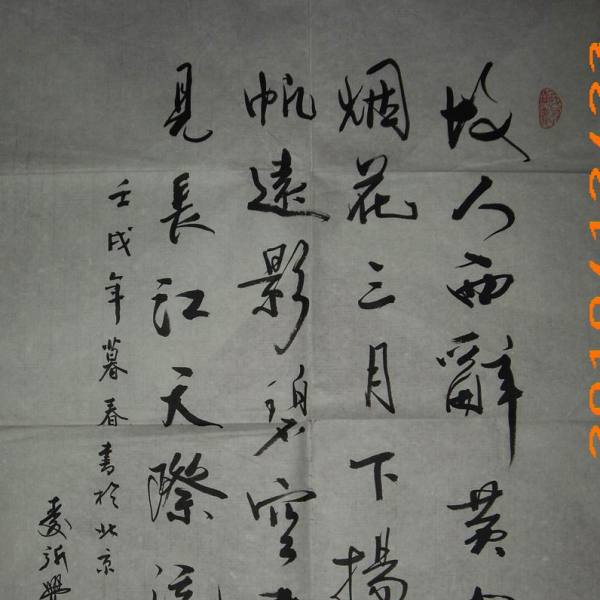 故人西辭黄
烟花三月下揚
帆遠影碧空
見長江天際流
壬戌年暮春書於北京
2010/12/23